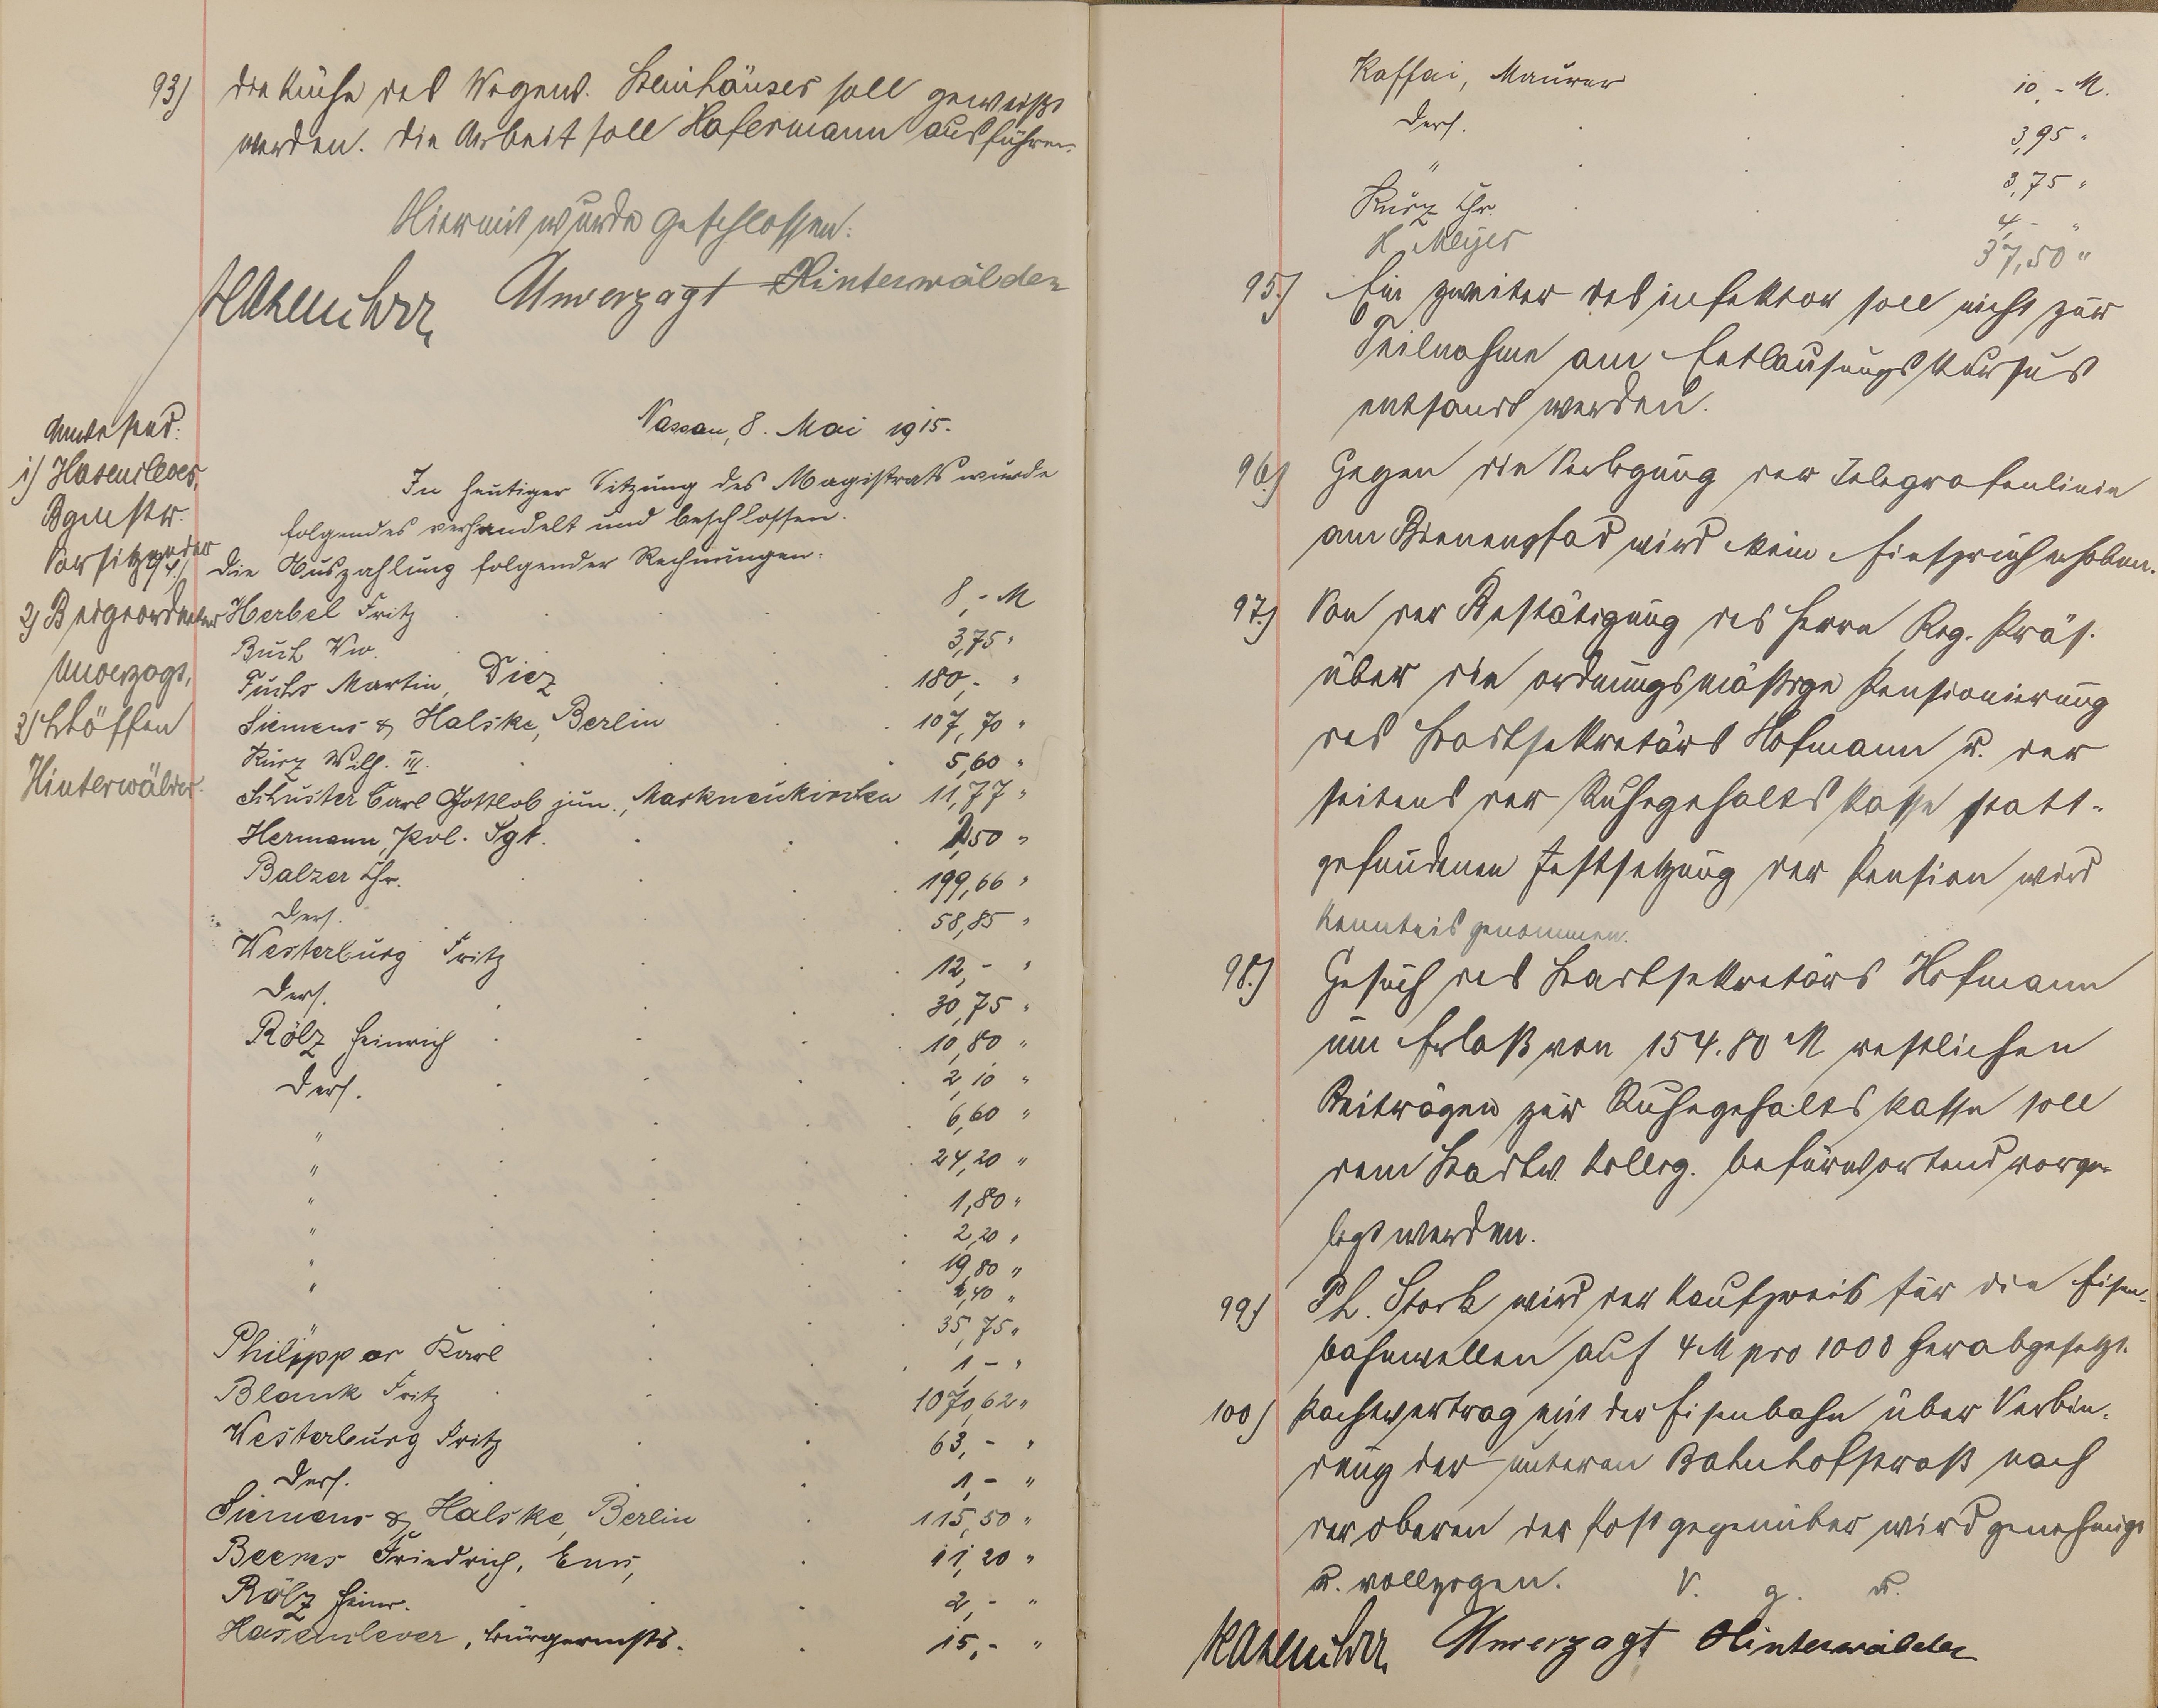 93) Die Küche des Wegew. Steinhäuser soll geweißt
werden. Die Arbeit soll Hafermann ausführen.
Hiermit wurde geschlossen.
Hasenclever Unverzagt Hinterwälder
Anwesend:
1) Hasenclever,
Bgmstr.
Vorsitzender
2) Beigeordneter
Unverzagt,
3) Schöffen
Hinterwälder.
Nassau, 8. Mai 1915.
In heutiger Sitzung des Magistrats wurde
folgendes verhandelt und beschlossen.
94.) Die Auszahlung folgender Rechnungen:
Herbel Fritz 8,- M
Buch Ww. 3,75 "
Fuchs Martin, Diez 180,- "
Siemens & Halske, Berlin 107,70 "
Kurz Wilh. III. 5,60 "
Schuster Carl Gottlob jun., Markneukirchen 11,77 "
Hermann, Pol. Sgt. 1,50 "
Balzer Chr. 199,66 "
Ders. 58,85 "
Westerburg Fritz 12,- "
Ders. 30,75 "
Rölz Heinrich 10,80 "
Ders. 2,10 "
" 6,60 "
" 24,20 "
" 1,80 "
" 2,20 "
" 19,80 "
" 2,40 "
" 35,75 "
Philippar Karl 1,- "
Blank Fritz 1070,62 "
Westerburg Fritz 63,- "
Ders. 1,- "
Siemens & Halske, Berlin 115,50 "
Beeres Friedrich, Ems, 11,20 "
Rölz Heinr. 2,- "
Hasenclever, Bürgermstr. 15,- "
Kaffai, Maurer 10,- M.
Ders. 3,95 "
" 3,75 "
Kurz Chr. 4,- "
H. Meyer 37,50 "
95.) Ein zweiter Desinfektor soll nicht zur
Teilnahme am Entlausungskursus
entsandt werden.
96.) Gegen die Verlegung der Telegrafenlinie
am Bienenpfad wird kein Einspruch erhoben.
97.) Von der Bestätigung des Herrn Reg. Präs.
über die ordnungsmäßige Pensionierung
des Stadtsekretärs Hofmann u. der
seitens der Ruhegehaltskasse statt-
gefundenen Festsetzung der Pension wird
Kenntnis genommen.
98.) Gesuch des Stadtsekretärs Hofmann
um Erlaß von 154.80 M restlichen
Beiträgen zur Ruhegehaltskasse soll
dem Stadtv. Kolleg. befürwortend vorge-
legt werden.
99.) Ph. Stork wird der Kaufpreis für die Eisen-
bahnwellen auf 4 M pro 1000 herabgesetzt.
100) Pachtvertrag mit der Eisenbahn über Verbin-
dung der unteren Bahnhofstraß nach
der oberen der Post gegenüber wird genehmigt
u. vollzogen. V. g. u.
Hasenclever Unverzagt Hinterwälder